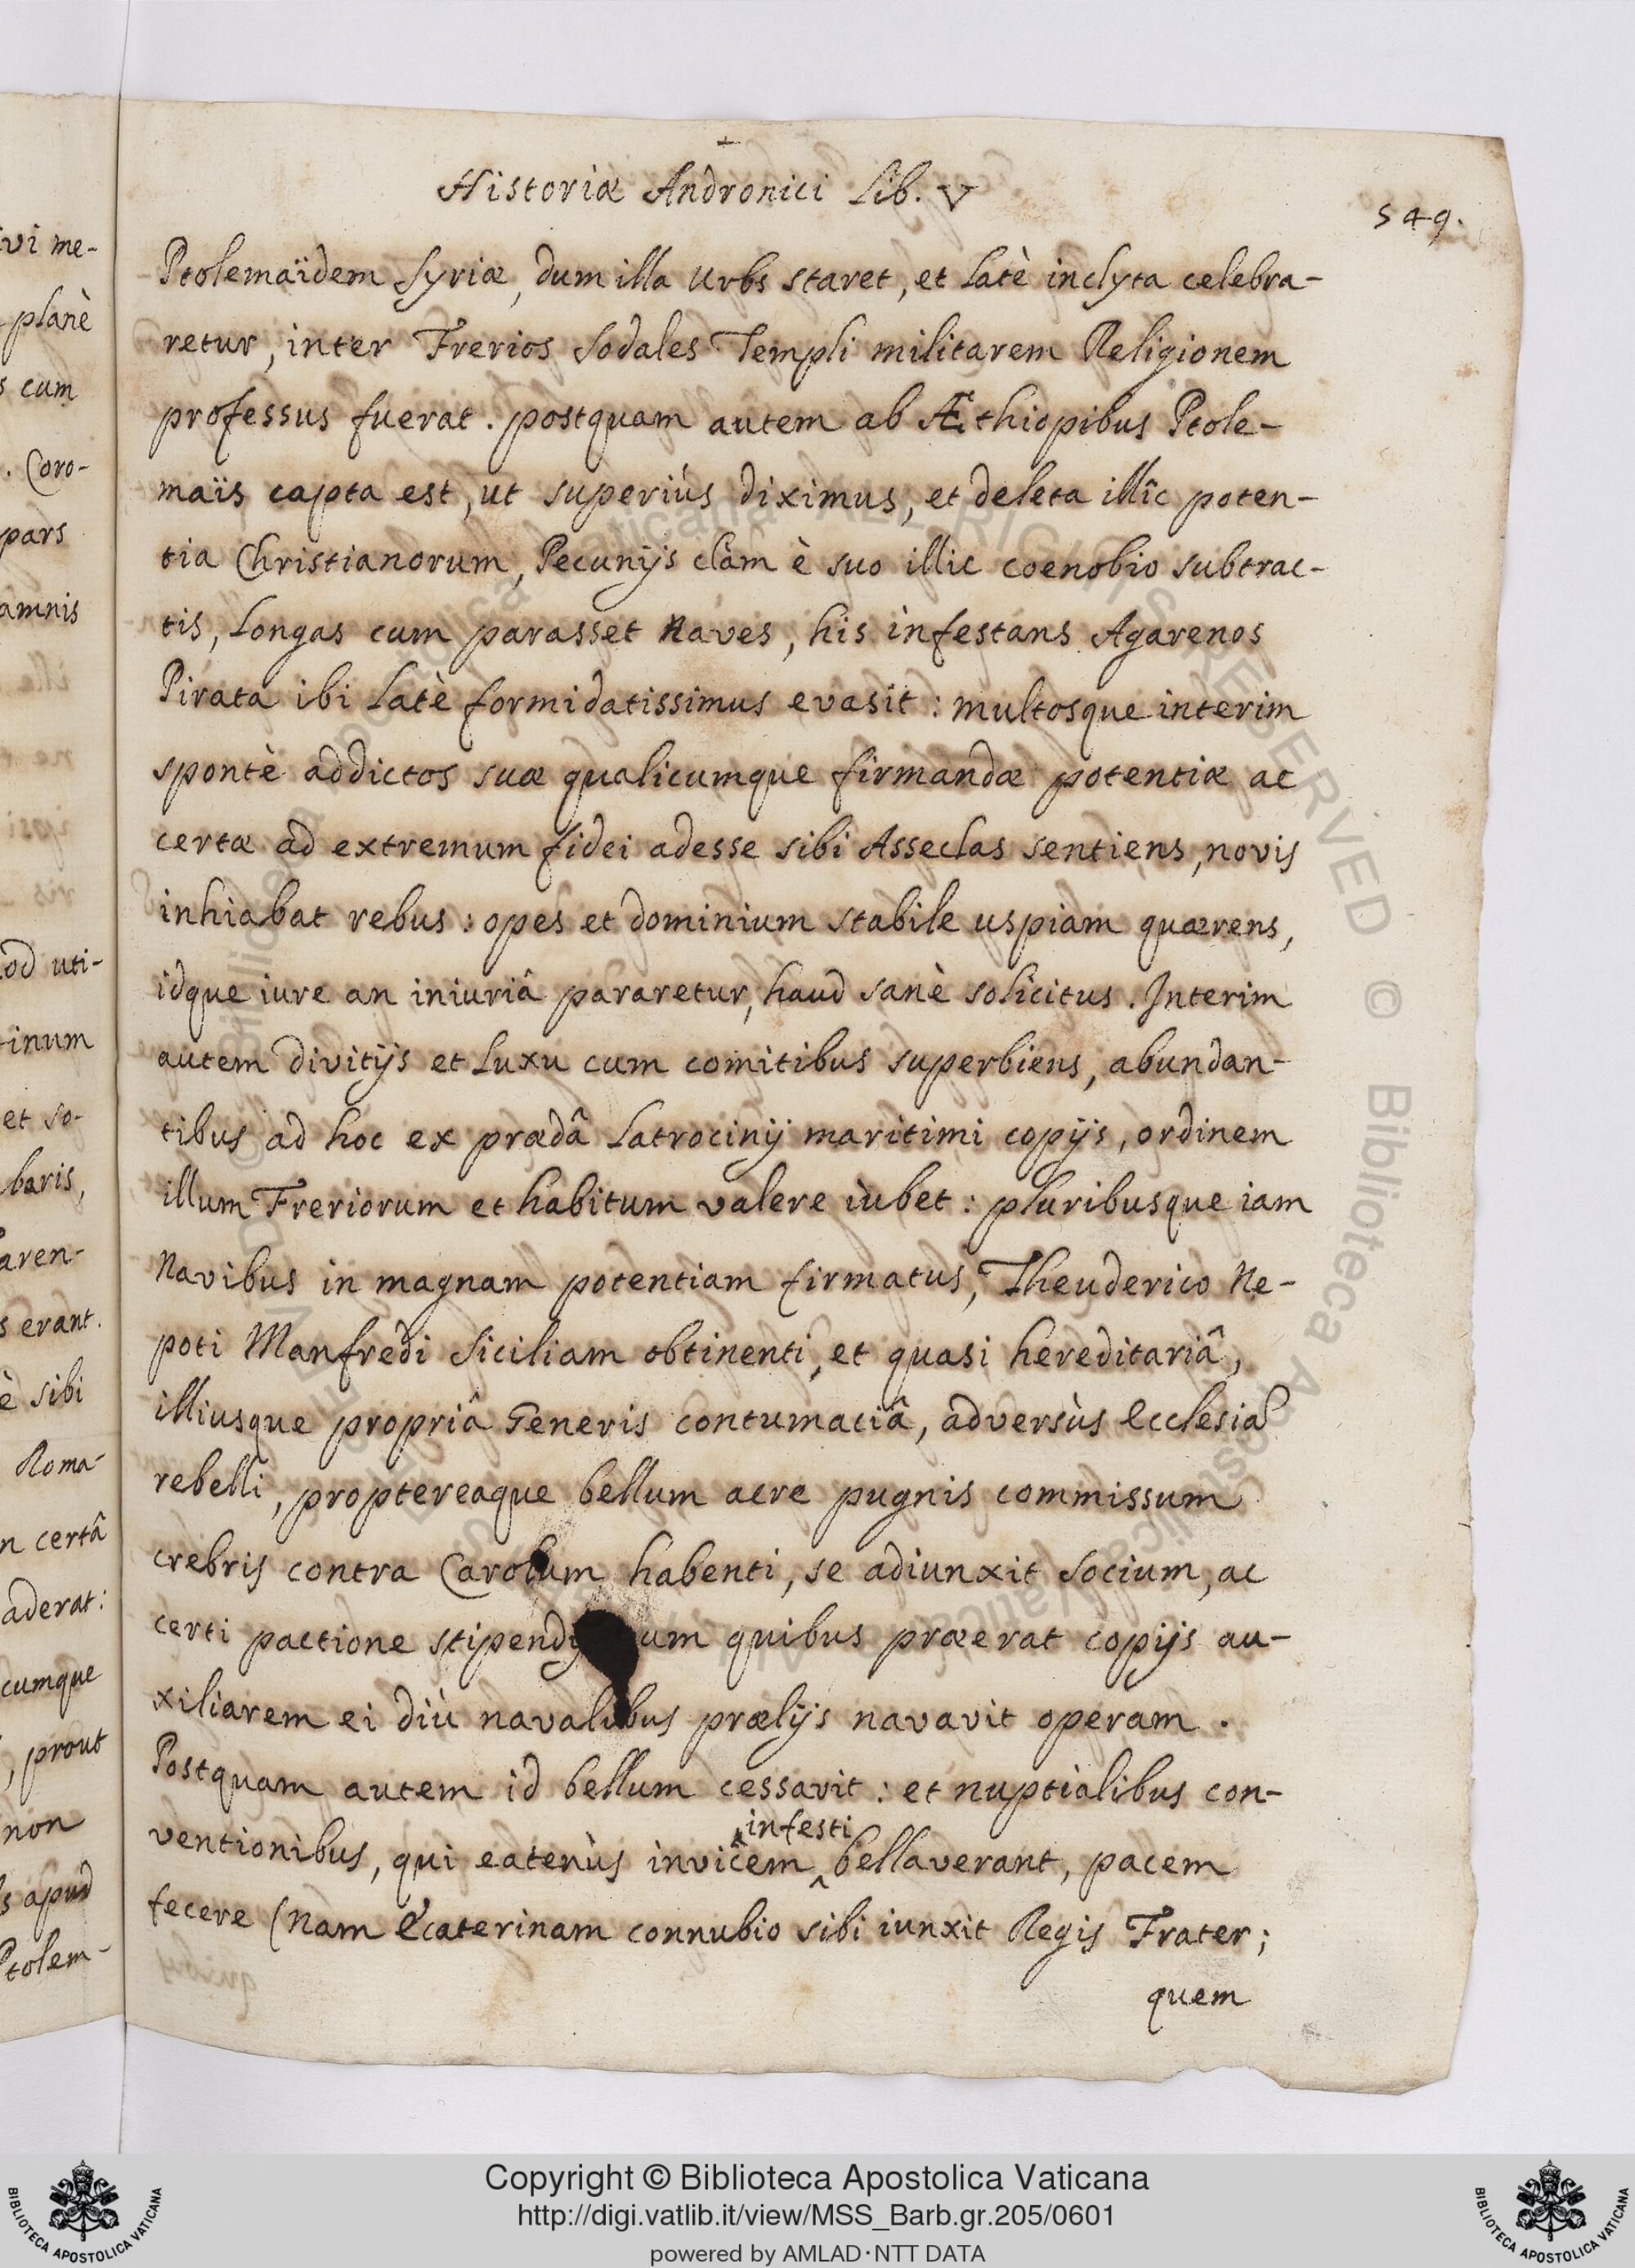 Historiæ Andronici Lib. V
549.
Ptolemaïdem Syriæ, dum illa Urbs staret, et Latè inclyta celebra-
retur, inter Frerios Sodales Templi militarem Religionem
professus fuerat. postquam autem ab Æthiopibus Ptole-
maïs capta est, ut superiùs diximus, et deleta illîc poten-
tia Christianorum, Pecunijs clàm è suo illic coenobio subtrac-
tis, Longas cum parasset Naves, his infestans Agarenos
Pirata ibi Latè formidatissimus evasit: multosque interim
spontè addictos suæ qualicumque firmandæ potentiæ ac
certæ ad extremum fidei adesse sibi Asseclas sentiens, novis
inhiabat rebus: opes et dominium stabile uspiam quærens,
idque iure an iniuriâ pararetur, haud sanè solicitus. Interim
autem divitijs et Luxu cum comitibus superbiens, abundan-
tibus ad hoc ex prædâ Latrocinij maritimi copijs, ordinem
illum Freriorum et habitum valere iubet: pluribusque iam
Navibus in magnam potentiam firmatus, Theuderico Ne-
poti Manfredi Siciliam obtinenti, et quasi hereditariâ,
illiusque propriâ Generis contumaciâ, adversùs Ecclesiã
rebelli, proptereaque bellum acre pugnis commissum
crebris contra Carolum habenti, se adiunxit Socium, ac
certi pactione stipendij um quibus præerat copijs au-
xiliarem ei diù navalibus prælijs navavit operam.
Postquam autem id bellum cessavit: et nuptialibus con-
infesti
ventionibus, qui eatenùs invicem bellaverant, pacem
fecere (Nam Ecaterinam connubio sibi iunxit Regis Frater;
quem
vi me-
planè
s cum
. Coro-
pars
amnis
od uti-
tinum
et so-
baris,
aren-
s erant.
è sibi
Roma-
n certâ
aderat:
cumque
, prout
non
s apud
Ptolem-
Copyright © Biblioteca Apostolica Vaticana
http://digi.vatlib.it/view/MSS_Barb.gr.205/0601
powered by AMLAD·NTT DATA
BIBLIOTECA APOSTOLICA VATICANA
BIBLIOTECA APOSTOLICA VATICANA